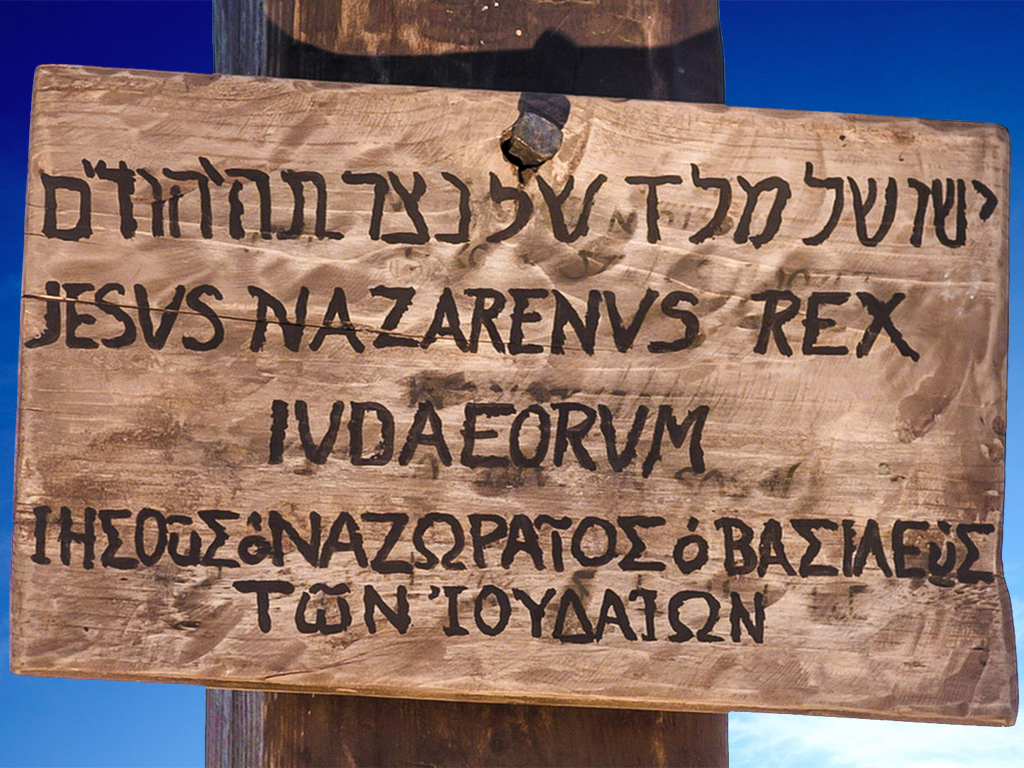 ישו של מלך של נצרת היהודים
JESVS NAZARENVS REX
IVDAEORVM
ΙΗΣΟῦΣ ὁ ΝΑΖΩΡΑῖΟΣ ὁ ΒΑΣΙΛΕὺΣ
ΤῶΝ ἸΟΥΔΑΊΩΝ